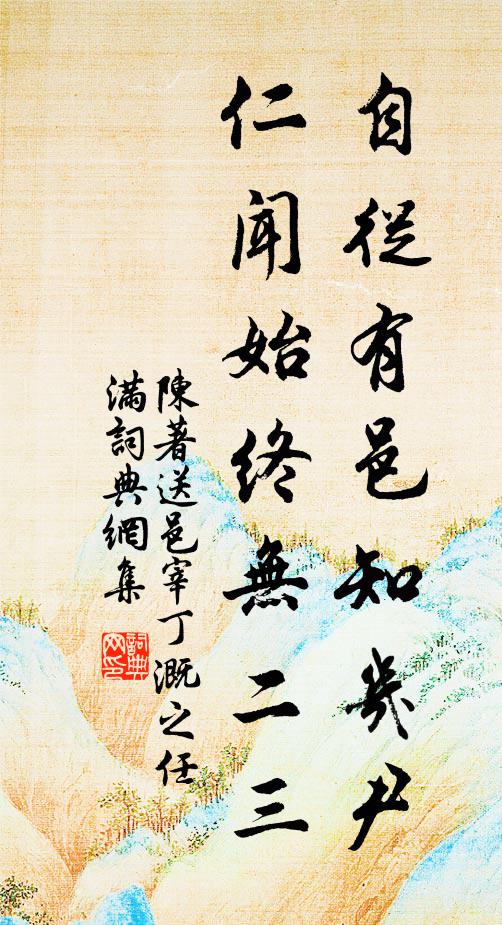 自從有邑知幾尹
仁聞始終無二三
陳著送邑宰丁溉之任
滿詞典網集
詞典網印